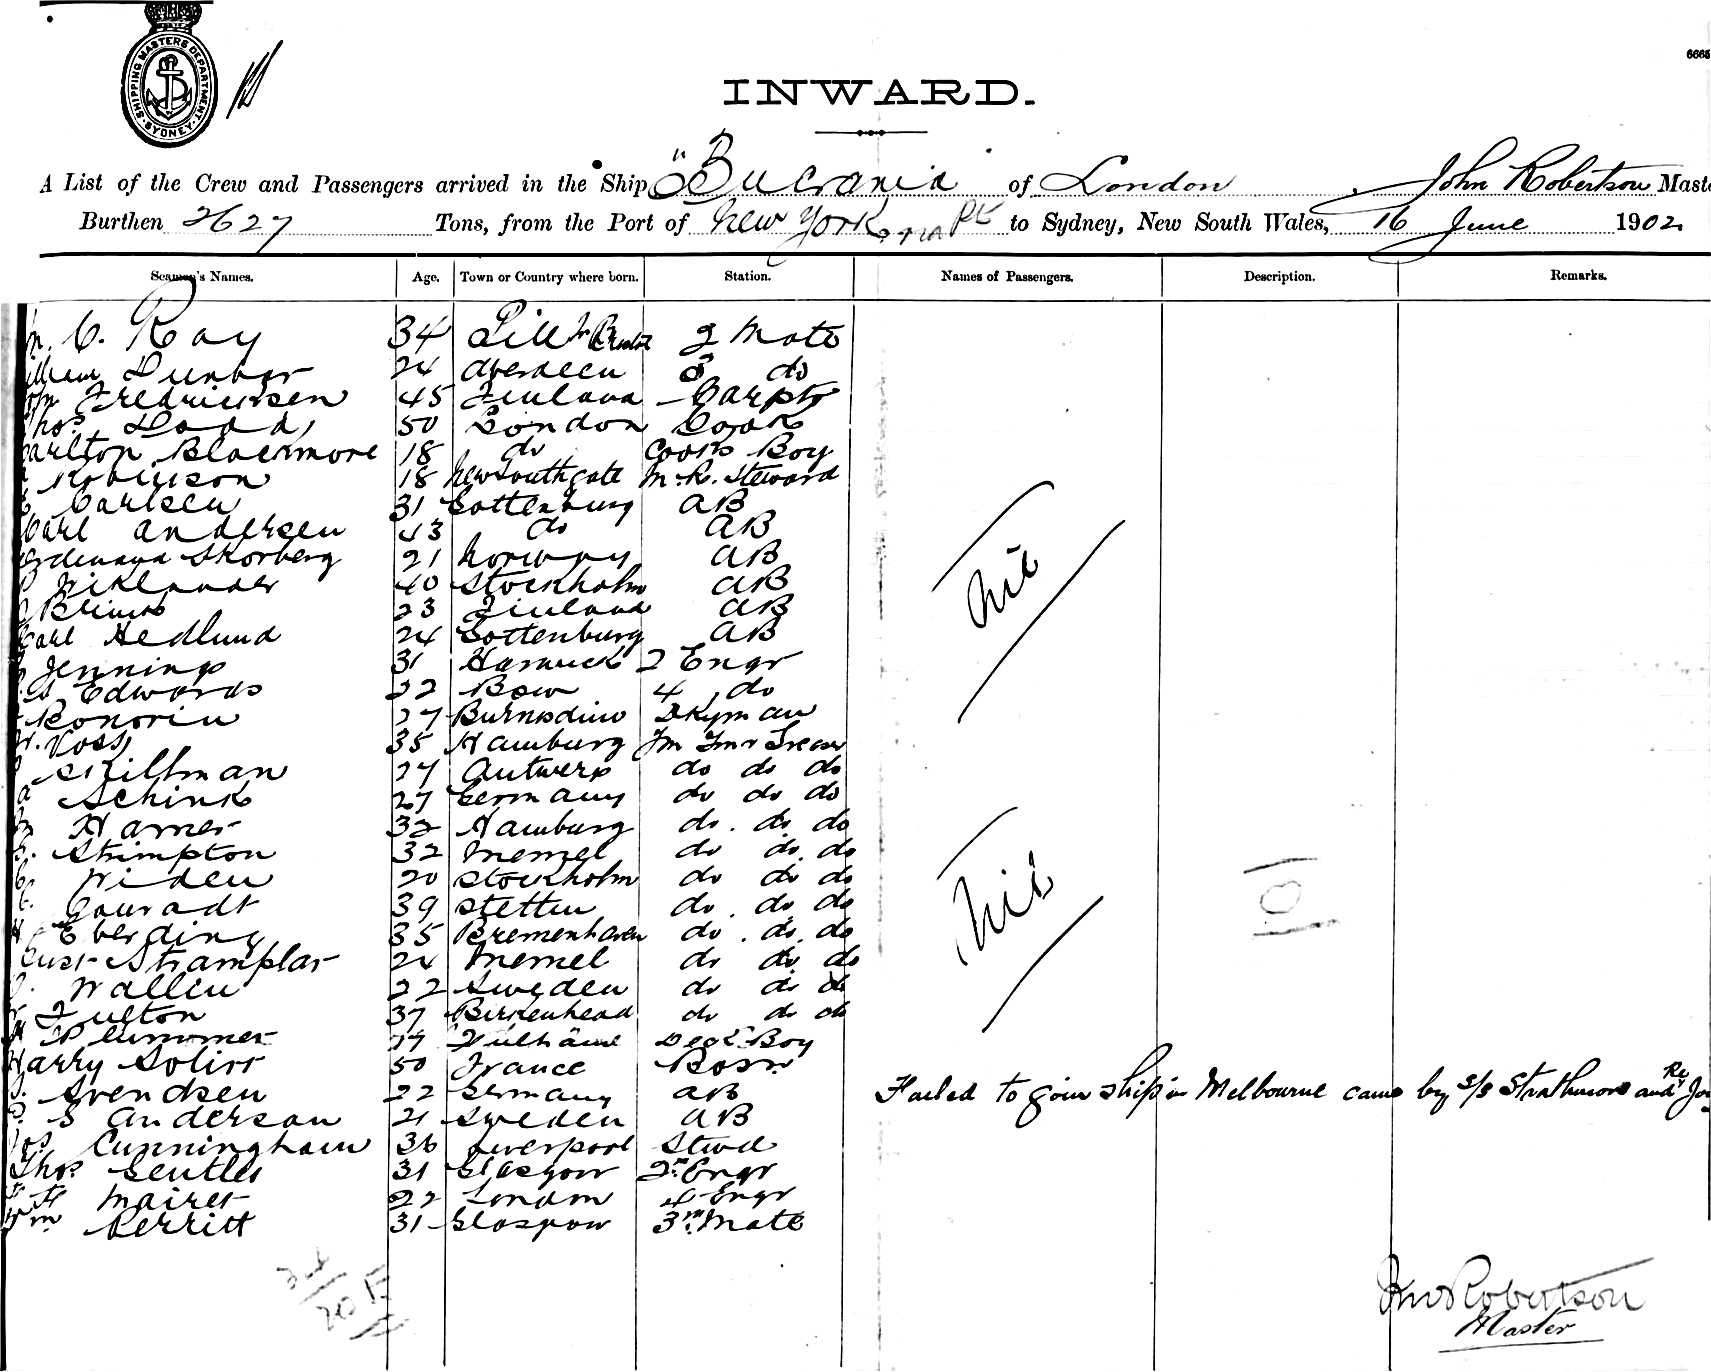 SHIPPING MASTERS DEPARTMENT SYDNEY
6665
INWARD.
A List of the Crew and Passengers arrived in the Ship "Bucrania" of London John Robertson Mast
Burthen 2627 Tons, from the Port of New York via to Sydney, New South Wales, 16 June 1902
Seamen's Names. Age. Town or Country where born. Station. Names of Passengers. Description. Remarks.
C. Ray 34 Pill 2 Mate
Dunbar 24 Aberdeen 3 do
Fredricksen 45 Finland Carptr
Thos Dodd 50 London Cook
arlton Blackmore 18 do Cooks Boy
Robinson 18 New Southgate M. R. Steward
Carlsen 31 Gottenburg AB
Carl Andersen 43 do AB
Skorberg 21 Norway AB
Wiklander 40 Stockholm AB
23 Finland AB
Carl Hedlund 24 Gottenburg AB
Jennings 31 Harwick 2 Engr
Edwards 22 Bow 4 do
27 Dkyman
Voss 35 Hamburg Fm Tmr Greaser
Skillman 27 Antwerp do do do
Schink 27 Germany do do do
Harner 32 Hamburg do do do
Shimpton 32 Memel do do do
Widen 20 Stockholm do do do
Conradt 39 Stettin do do do
Eberding 35 Bremenhaven do do do
Gust Stramplar 24 Memel do do do
Wallin 22 Sweden do do do
Fulton 37 Birkenhead do do do
Plummer 17 Deck Boy
Harry Solier 50 France Bosn
Svendsen 22 Germany AB Failed to join ship in Melbourne came by s/s Strathmore and Re Jo
S Anderson 21 Sweden AB
Jos Cunningham 36 Liverpool Stwd
Thos Gentles 31 Glasgow 2nd Engr
Mairet 22 London 4 Engr
Wm Perritt 31 Glasgow 3rd Mate
Nil
Nil
Jno Robertson
Master